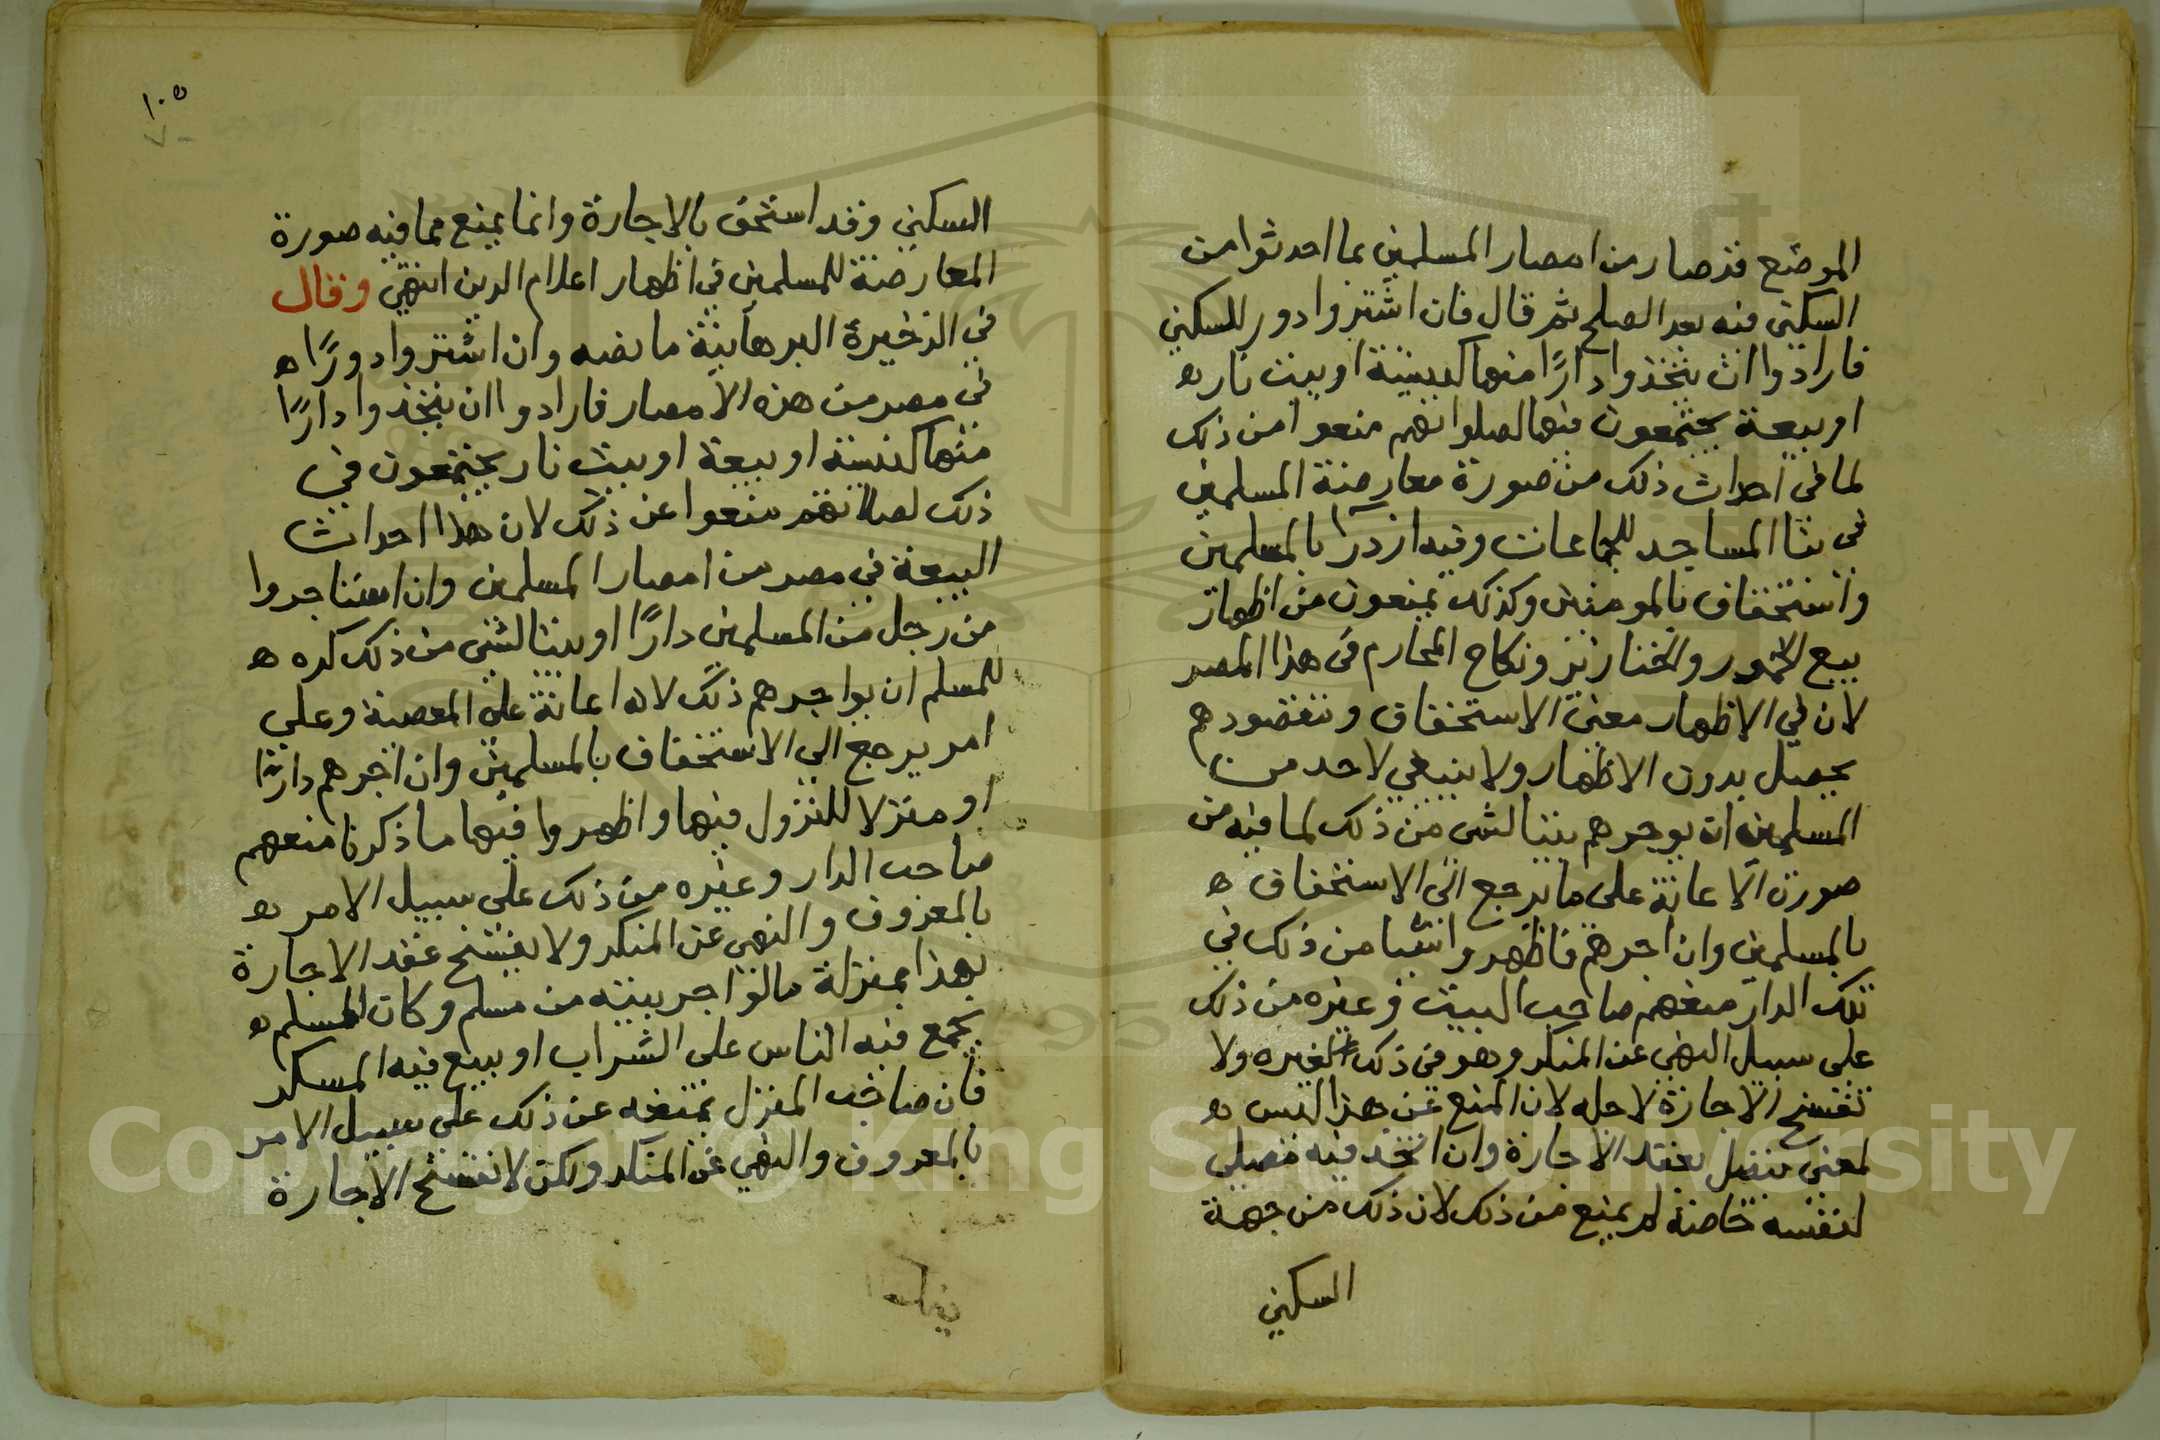 الموضع قد صار من امصار المسلمين عما احدثوا من
السكنى فيه بعد الصلح ثم قال فان اشتروا دور للسكني
فارادوا ان يتخذوا دارًا منها كنيسة او بيت نار ه
او بيعة يجتمعون فيها لصلواتهم منعوا من ذلك
لما في احداث ذلك من صورة معارضة المسلمين
في بنا المساجد للجماعات وفيه ازدرآ بالمسلمين
واستخفاف بالمومنين وكذلك يمنعون من اظهار
بيع الخمور والخنازير ونكاح المحارم في هذا المصر
لان في الاظهار معنى الاستخفاف ومقصودهم
يحصل بدون الاظهار ولا ينبغي لاحد من
المسلمين ان يوجرهم بيتا لشى من ذلك لما فيه من
صورة الاعانة على ما يرجع الى الاستخفاف ه
بالمسلمين وان اجرهم فاظهروا شيا من ذلك في
تلك الدار منعهم صاحب البيت وغيره من ذلك
على سبيل النهي عن المنكر وهو في ذلك كغيره ولا
تفسخ الاجارة لاجله لان المنع عن هذا ليس ه
لمعنى يتصل بعقد الاجارة وان اتخذ فيه مصلى
لنفسه خاصة لم يمنع من ذلك لان ذلك من جهة
السكني
١٠٥
السكني وقد استحق بالاجارة وانما يمنع مما فيه صورة
المعارضة للمسلمين في اظهار اعلام الدين انتهي وقال
في الذخيرة البرهآنية ما نصه وان اشتروا دورًا ه
في مصر من هذه الامصار فارادوا ان يتخذوا دارًا
منها كنيسة او بيعة او بيت نار يجتمعون في
ذلك لصلاتهم منعوا عن ذلك لان هذا احداث
البيعة في مصر من امصار المسلمين وان استاجروا
من رجل من المسلمين دارًا او بيتا لشي من ذلك كره ه
للمسلم ان يواجرهم ذلك لانه اعانة على المعصية وعلي
امر يرجع الي الاستخفاف بالمسلمين وان اجرهم دارًا
او منزلا للنزول فيها واظهروا فيها ما ذكرنا منعهم
صاحب الدار وغيره من ذلك على سبيل الامر ه
بالمعروف والنهي عن المنكر ولا يفسخ عقد الاجارة
بهذا بمنزلة ما لو اجر بيته من مسلم وكان المسلم ه
يجمع فيه الناس على الشراب او يبيع فيه المسكر
فان صاحب المنزل يمنعه عن ذلك على سبيل الامر
بالمعروف والنهي عن المنكر ولكن لا تفسخ الاجارة
Copyright © King Saud University